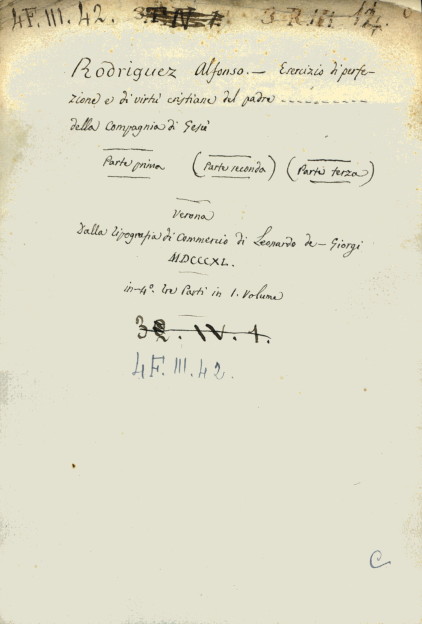 4F. III. 42. 3 R. III. 12.
Rodriguez Alfonso. — Esercizio di perfe-
zione e di virtù cristiane del padre -----------
della Compagnia di Gesù
Parte prima (Parte seconda) (Parte terza)
Verona
Dalla Tipografia di Commercio di Leonardo de-Giorgi
MDCCCXL.
in-4°. tre Parti in 1. Volume
32. IV. 1.
4F. III. 42.
C